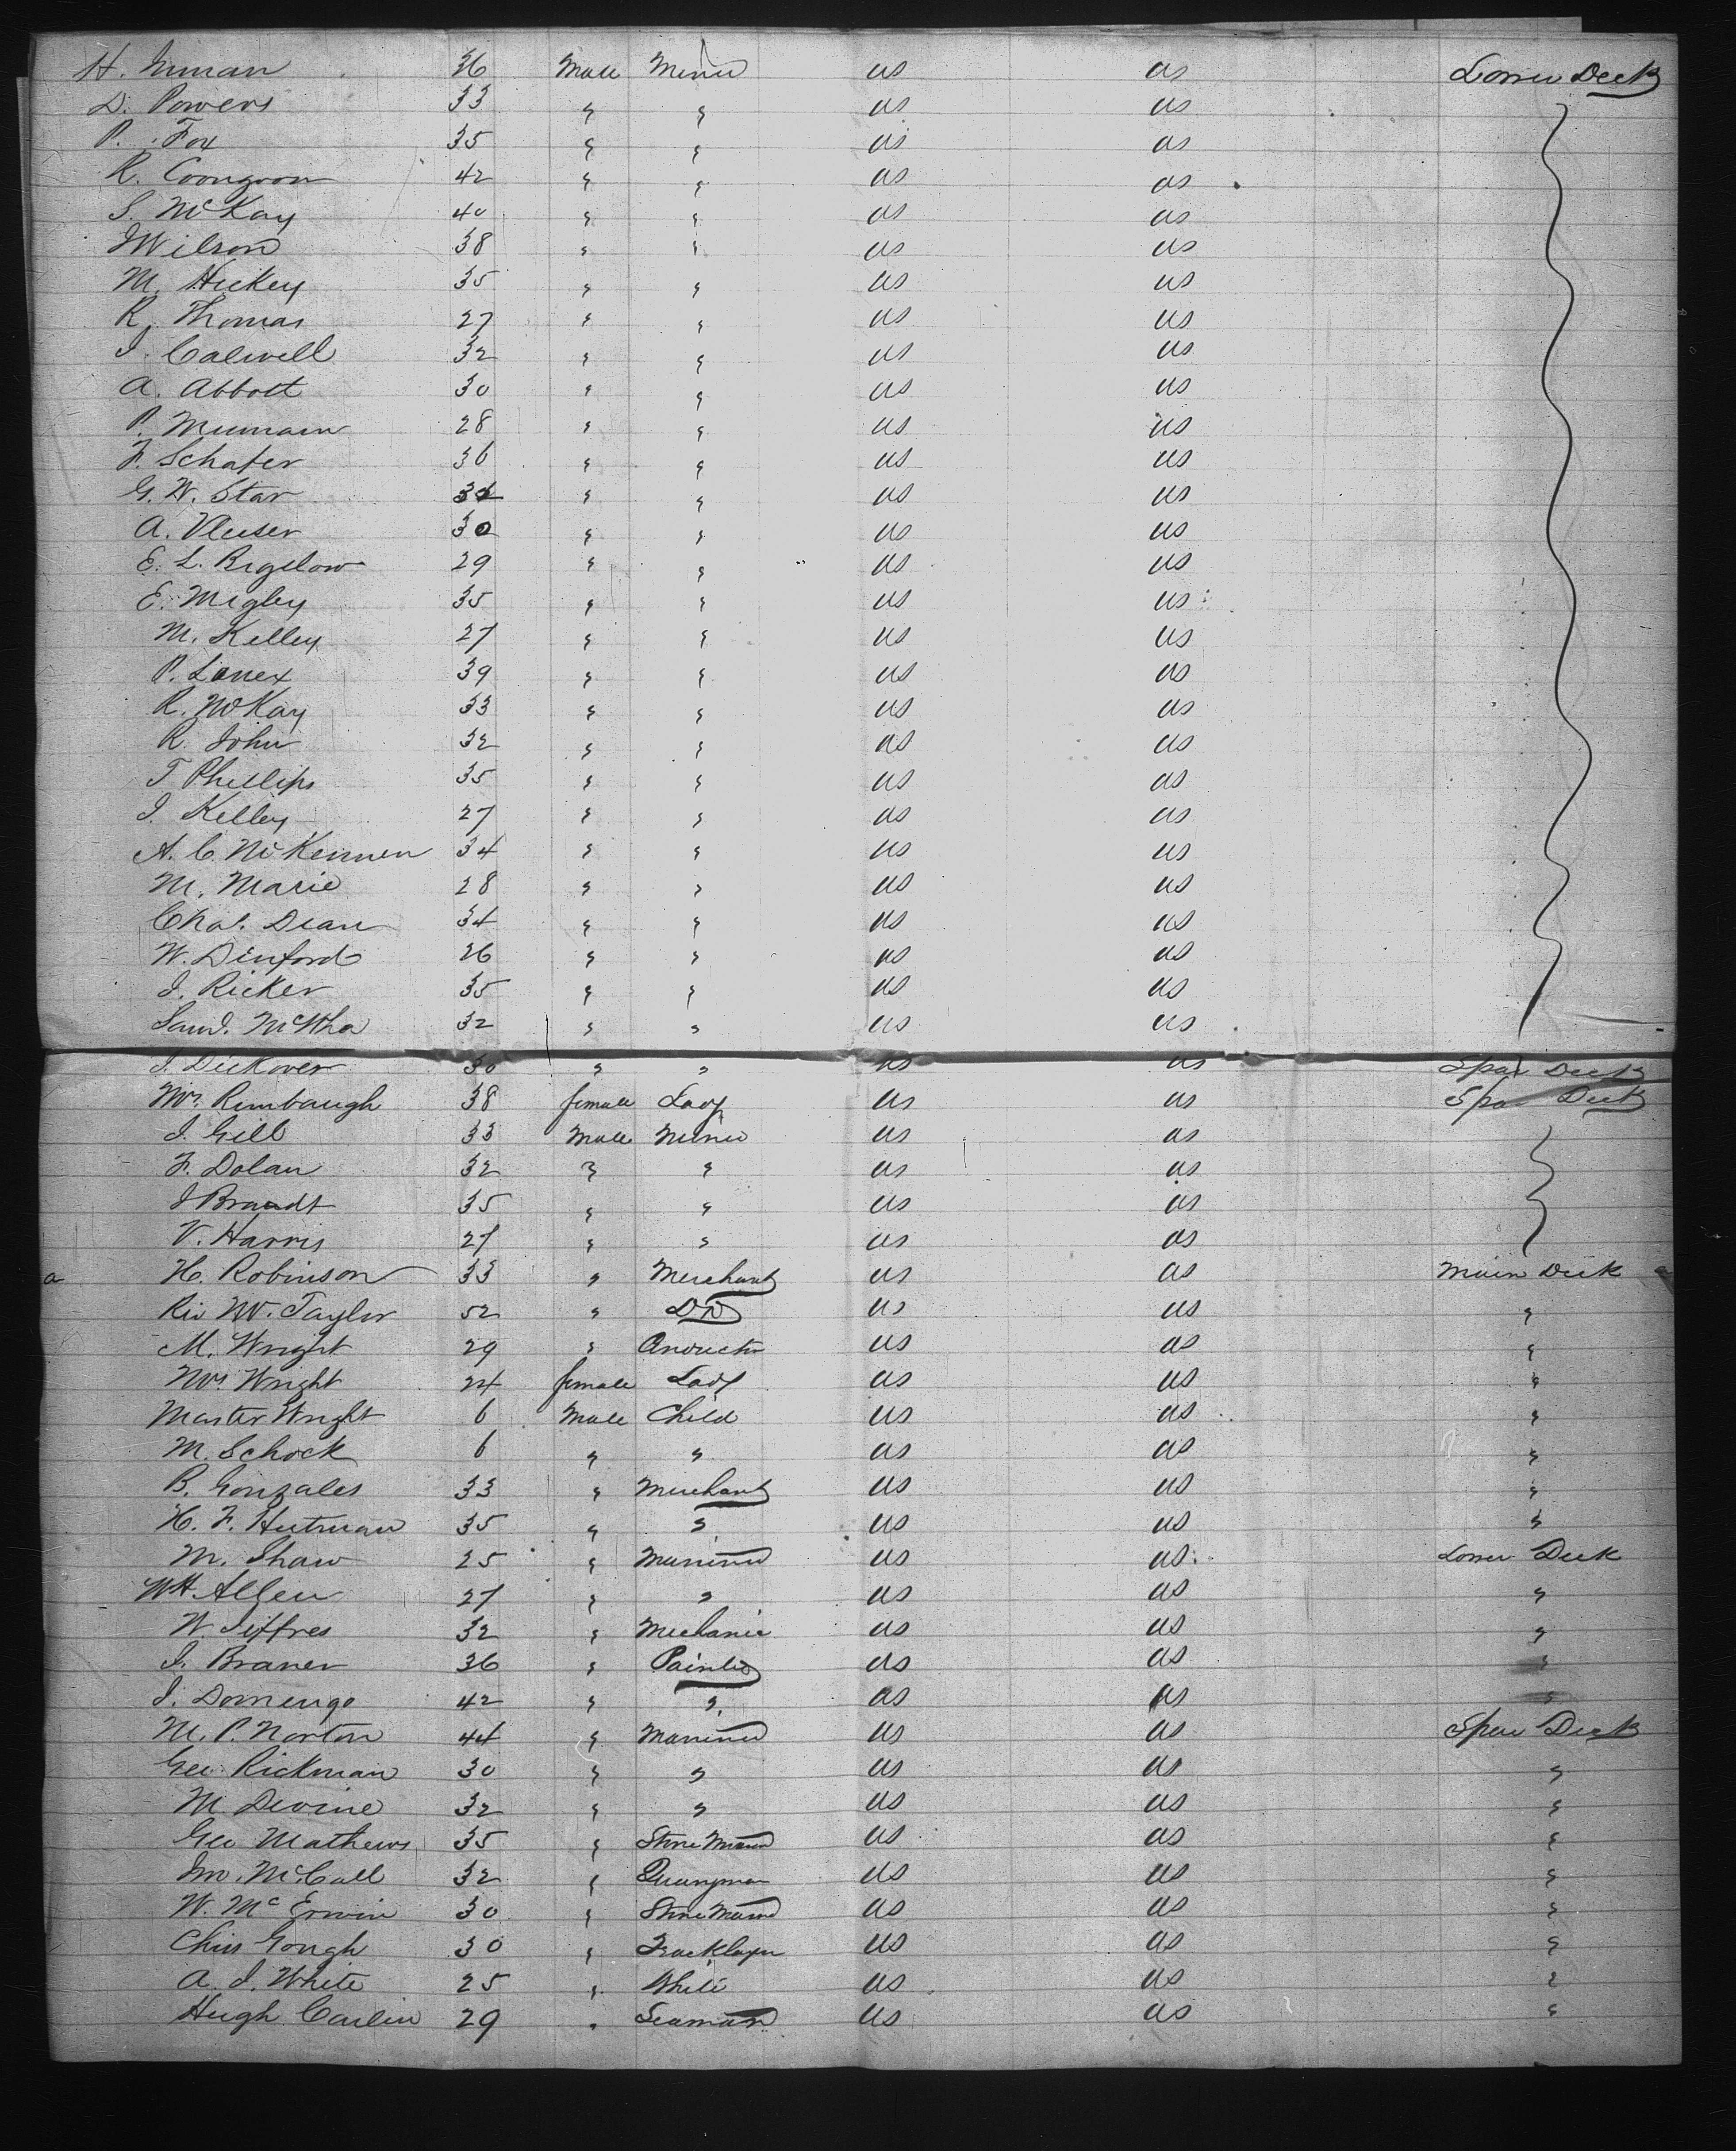 H. Inman 36 Male Miner US US Lower Deck
D. Powers 33 " " US US
P. Fox 35 " " US US
R. 42 " " US US
S. McKay 40 " " US US
J Wilson 38 " " US US
M. Hickey 35 " " US US
R. Thomas 27 " " US US
J. Calwell 32 " " US US
A. Abbott 30 " " US US
P. 28 " " US US
F. Schafer 36 " " US US
G. W. Star " " US US
A. 30 " " US US
E. L. Bigelow 29 " " US US
E. Migley 35 " " US US
M. Kelley 27 " " US US
P. Lanex 39 " " US US
R. McKay 33 " " US US
R. John 32 " " US US
T Phillips 35 " " US US
J. Kelley 27 " " US US
A. C. McKennen 34 " " US US
M. Marie 28 " " US US
Chas. Dean 34 " " US US
W. Dinford 26 " " US US
J. Ricker 35 " " US US
Saml. 32 " " US US
J. Dickover 30 " " US US Spar Deck
Mrs. Rimbaugh 38 female Lady US US Spar Deck
J. Gill 33 Male Miner US US
F. Dolan 32 " " US US
J Brandt 35 " " US US
V. Harris 27 " " US US
a H. Robinson 33 " Merchant US US Main Deck a
Rev W. Taylor 52 " DD US US "
M. Wright 29 " US US "
Mrs. Wright 24 female Lady US US "
Master Wright 6 Male Child US US "
M. Schock 6 " " US US "
B. Gonzales 33 " Merchant US US "
H. F. Hutman 35 " " US US "
M. Shaw 25 " Mariner US US Lower Deck
W H. Allen 27 " " US US "
W. Jeffres 32 " Mechanic US US "
J. Braner 36 " Painter US US "
J. Domengo 42 " " US US "
M. P. Norton 44 " Mariner US US Spar Deck
Geo Rickman 30 " " US US "
M Devine 32 " " US US "
Geo Mathews 35 " Stone Mason US US "
Jno. McCall 32 " Quarryman US US "
W. McErwin 30 " Stone Mason US US "
Chis Gough 30 " Tracklayer US US "
A. J. White 25 " White US US "
Hugh Carlin 29 " Seaman US US "